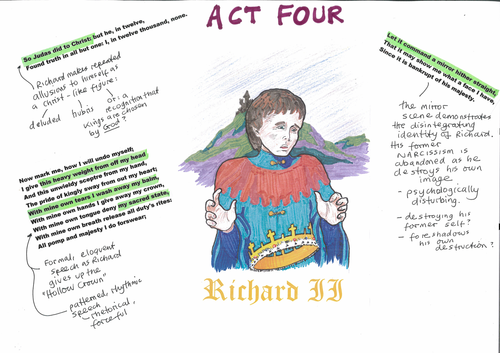 ACT FOUR
So Judas did to Christ: but he, in twelve,
Found truth in all but one: I, in twelve thousand, none.
Richard makes repeated
allusions to himself as
a Christ-like figure:
deluded hubris or: a
recognition that
kings are chosen
by God?
Now mark me, how I will undo myself;
I give this heavy weight from off my head
And this unwieldy sceptre from my hand,
The pride of kingly sway from out my heart;
With mine own tears I wash away my balm,
With mine own hands I give away my crown,
With mine own tongue deny my sacred state,
With mine own breath release all duty's rites:
All pomp and majesty I do forswear;
Formal, eloquent
speech as Richard
gives up the
"Hollow Crown"
patterned, rhythmic
speech
- rhetorical,
forceful
Richard II
Let it command a mirror hither straight,
That it may show me what a face I have,
Since it is bankrupt of his majesty.
the mirror
scene demonstrates
the disintegrating
identity of Richard.
His former
NARCISSISM is
abandoned as he
destroys his own
image
- psychologically
disturbing.
- destroying his
former self?
- foreshadows
his own
destruction?